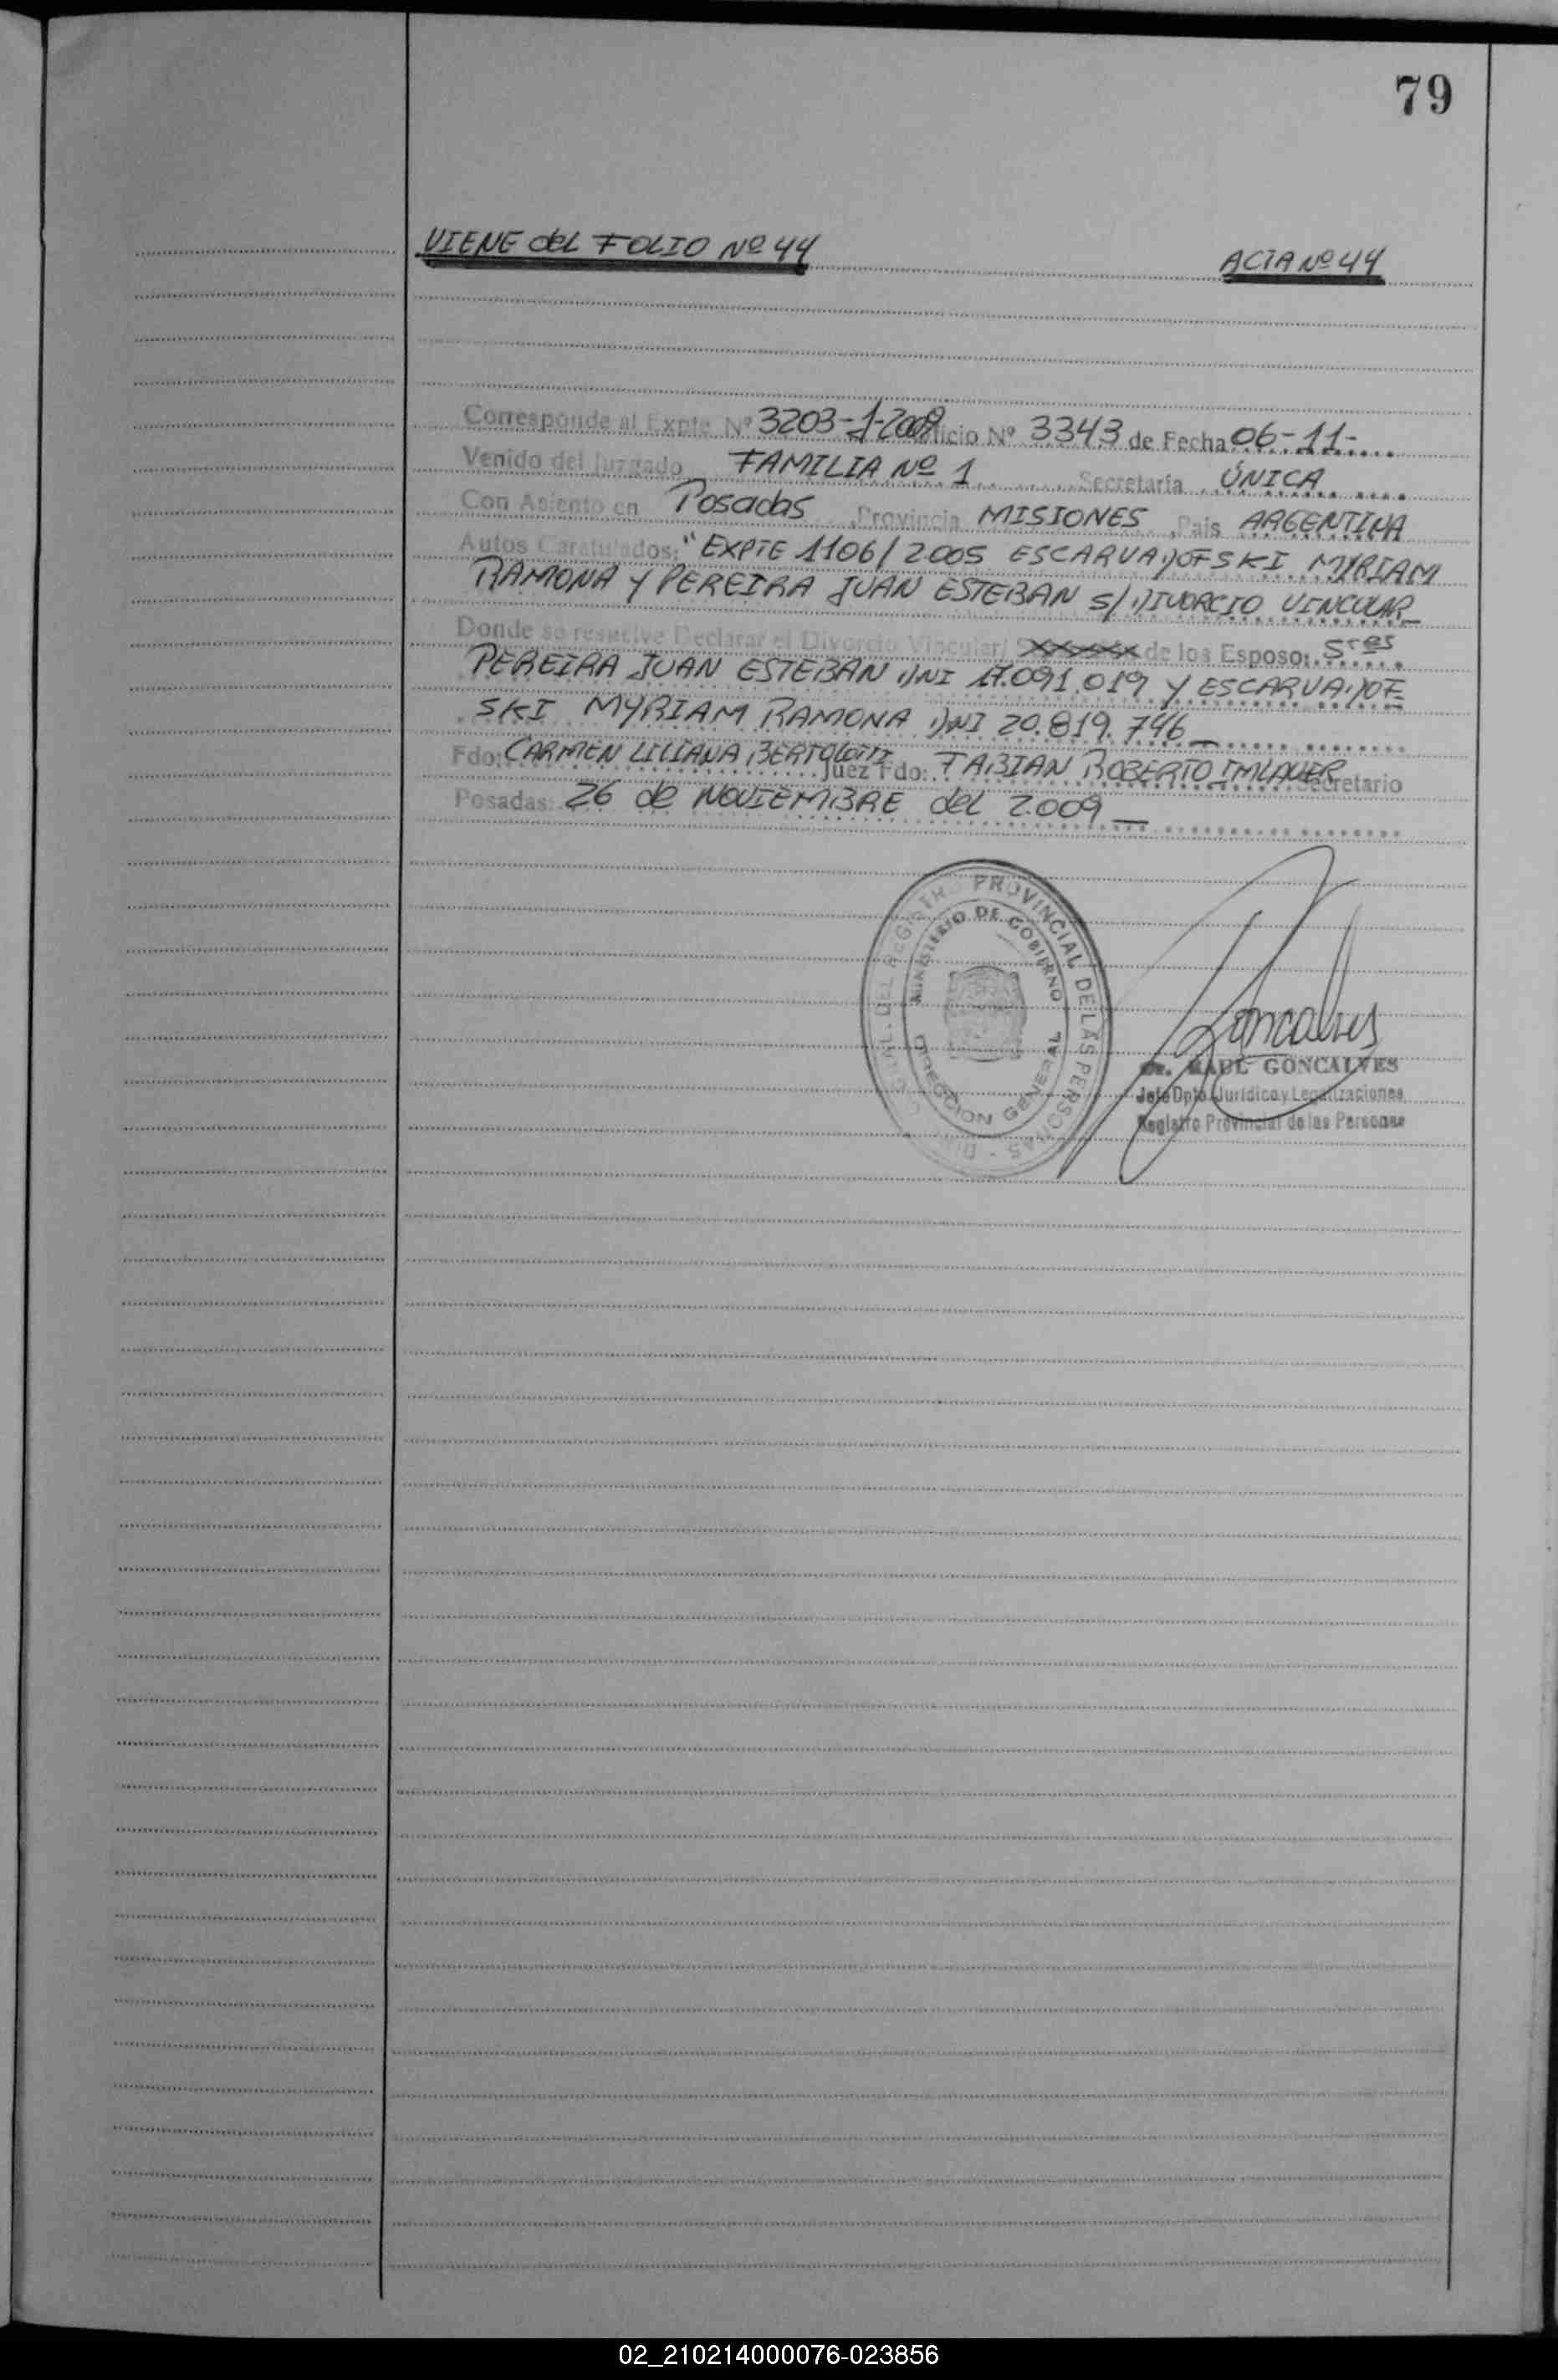 79
VIENE del FOLIO Nº 44 ACTA Nº 44
Corresponde al Expte Nº 3203-1-2009 Oficio Nº 3343 de Fecha 06-11-
Venido del Juzgado FAMILIA Nº 1 Secretaría ÚNICA
Con Asiento en Posadas Provincia MISIONES, Pais ARGENTINA
Autos Caratulados: "EXPTE 1106/2005 ESCARVADOFSKI MYRIAM
RAMONA Y PEREIRA JUAN ESTEBAN S/ DIVORCIO VINCULAR_
Donde se resuelve Declarar el Divorcio Vincular/ de los Esposo: Sres
PEREIRA JUAN ESTEBAN DNI 17.091.019 Y ESCARVADOF
SKI MYRIAM RAMONA DNI 20.819.746_
Fdo: CARMEN LILIANA BERTOLOTTI Juez Fdo: FABIAN ROBERTO IMLAUER Secretario
Posadas: 26 de NOVIEMBRE del 2.009_
DEL REGISTRO PROVINCIAL DE LAS PERSONAS
MINISTERIO DE GOBIERNO
DIRECCION GENERAL
Goncalves
Dr. RAUL GONCALVES
Jefe Dpto. Jurídico y Legalizaciones
Registro Provincial de las Personas
02_210214000076-023856